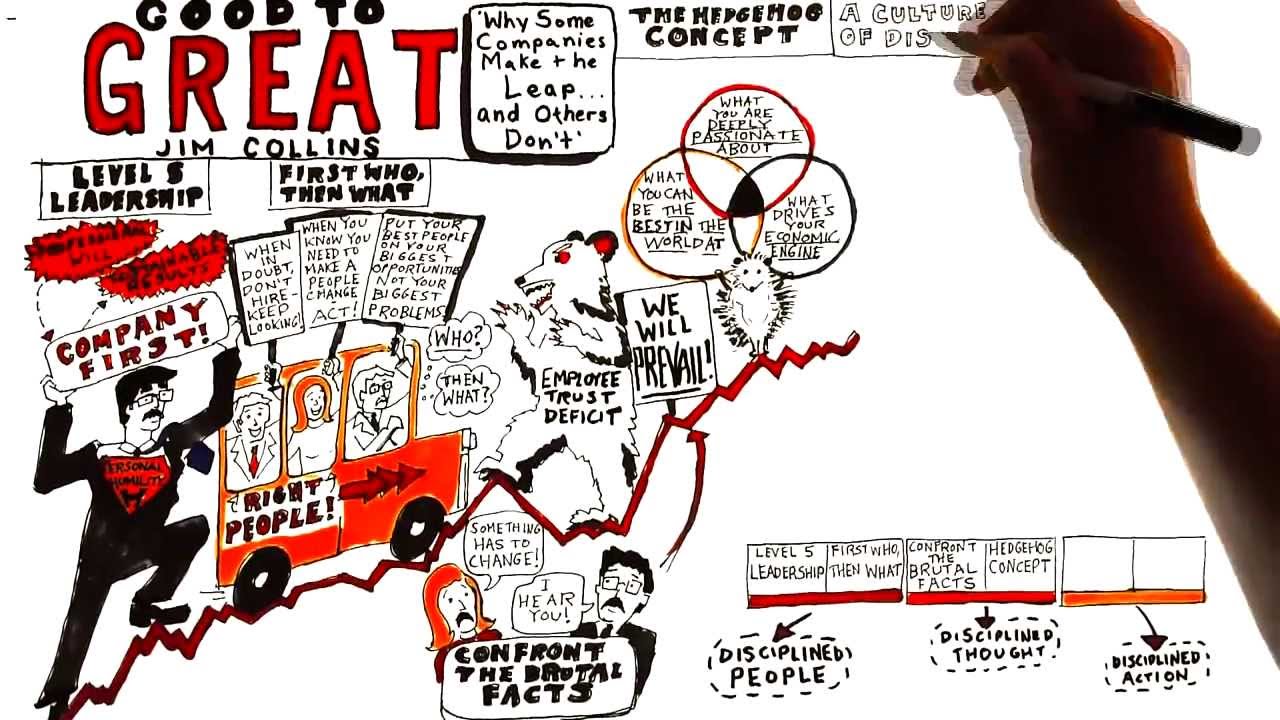 GOOD TO
GREAT
JIM COLLINS
'Why Some
Companies
Make the
Leap...
and Others
Don't'
THE HEDGEHOG
CONCEPT
A CULTURE
OF DIS
LEVEL 5
LEADERSHIP
FIRST WHO,
THEN WHAT
WILL
SUSTAINABLE
RESULTS
COMPANY
FIRST!
PERSONAL
HUMILITY
WHEN
IN
DOUBT,
DON'T
HIRE-
KEEP
LOOKING!
WHEN YOU
KNOW YOU
NEED TO
MAKE A
PEOPLE
CHANGE
ACT!
PUT YOUR
BEST PEOPLE
ON YOUR
BIGGEST
OPPORTUNITIES
NOT YOUR
BIGGEST
PROBLEMS
WHO?
THEN
WHAT?
RIGHT
PEOPLE!
EMPLOYEE
TRUST
DEFICIT
WE
WILL
PREVAIL!
WHAT
YOU ARE
DEEPLY
PASSIONATE
ABOUT
WHAT
YOU CAN
BE THE
BEST IN THE
WORLD AT
WHAT
DRIVES
YOUR
ECONOMIC
ENGINE
SOMETHING
HAS TO
CHANGE!
I
HEAR
YOU!
CONFRONT
THE BRUTAL
FACTS
LEVEL 5
LEADERSHIP
FIRST WHO,
THEN WHAT
CONFRONT
THE
BRUTAL
FACTS
HEDGEHOG
CONCEPT
DISCIPLINED
PEOPLE
DISCIPLINED
THOUGHT
DISCIPLINED
ACTION